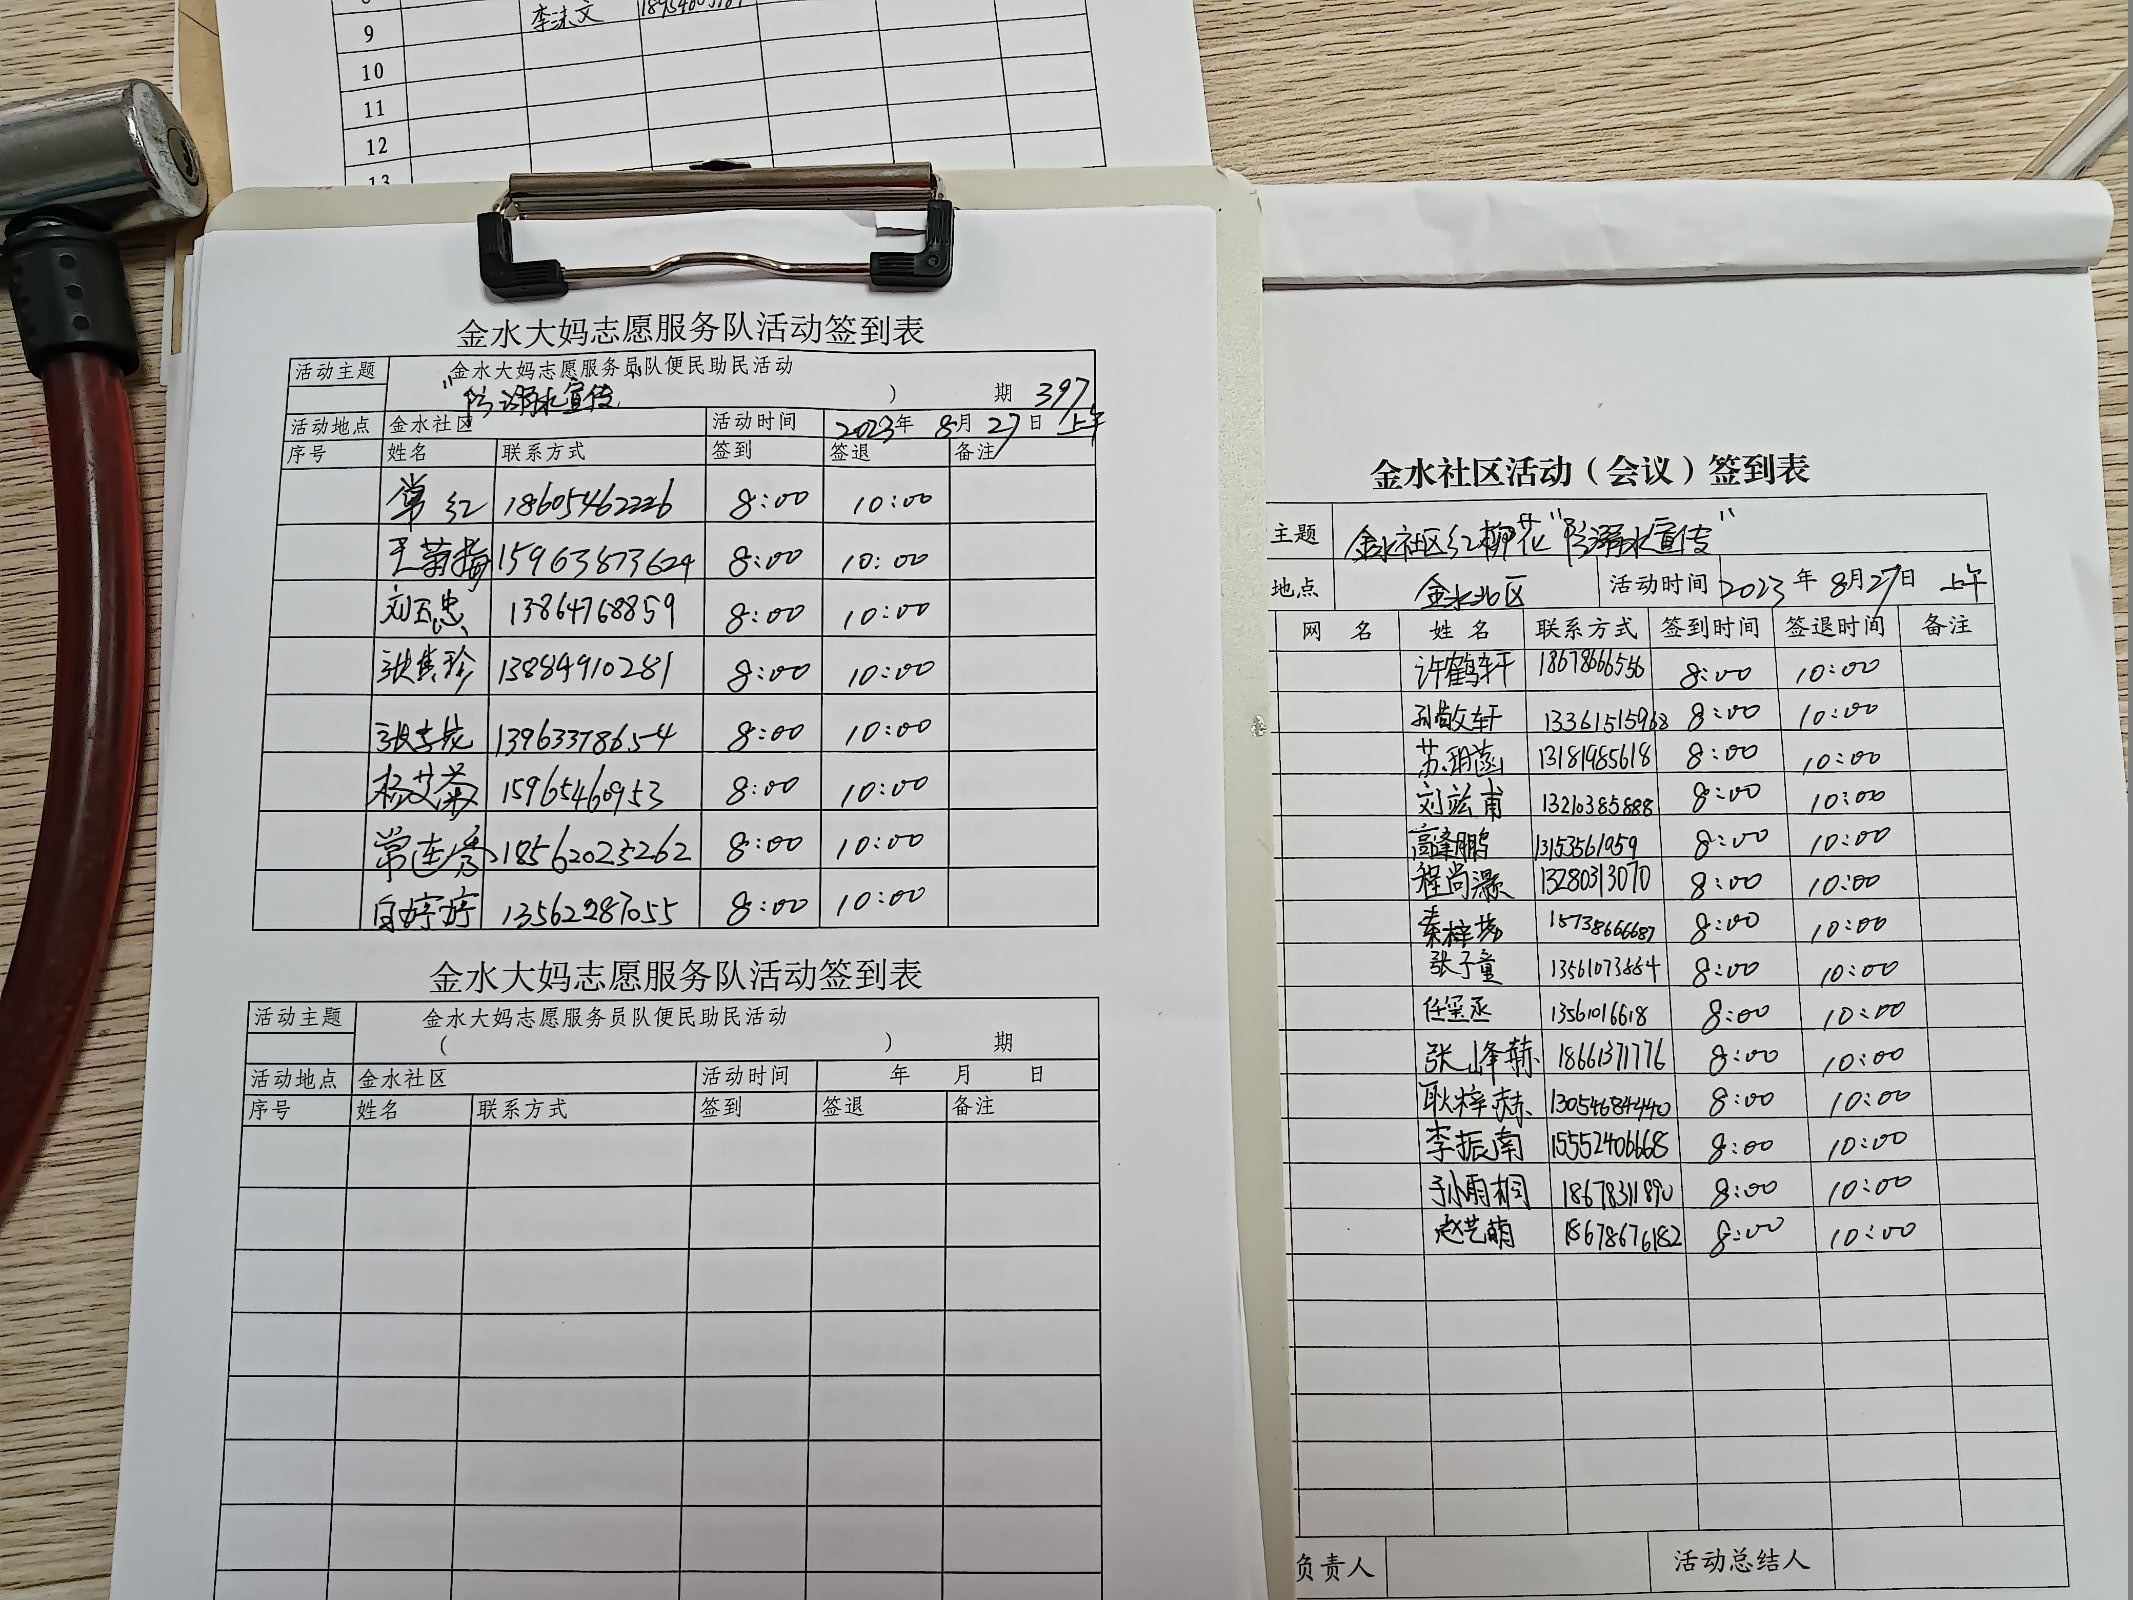 9 李沫文
10
11
12
13
金水大妈志愿服务队活动签到表
活动主题 金水大妈志愿服务员队便民助民活动
"防溺水宣传" ) 期 397
活动地点 金水社区 活动时间 2023年 8月 27日 上午
序号 姓名 联系方式 签到 签退 备注
常红 18605462226 8:00 10:00
王菊梅 15963873624 8:00 10:00
刘玉忠 13864768859 8:00 10:00
13884910281 8:00 10:00
13963378654 8:00 10:00
杨艾菊 15965460953 8:00 10:00
常连秀 18562023262 8:00 10:00
白婷婷 13562287055 8:00 10:00
金水大妈志愿服务队活动签到表
活动主题 金水大妈志愿服务员队便民助民活动
( ) 期
活动地点 金水社区 活动时间 年 月 日
序号 姓名 联系方式 签到 签退 备注
金水社区活动（会议）签到表
主题 金水社区红柳花"防溺水宣传"
地点 金水北区 活动时间 2023年 8月27日 上午
网 名 姓 名 联系方式 签到时间 签退时间 备注
许鹤轩 18678666556 8:00 10:00
孙敬轩 13361515968 8:00 10:00
苏玥菡 13181985618 8:00 10:00
刘竑甫 13210385888 8:00 10:00
高逢鹏 13153561959 8:00 10:00
程尚濠 13280313070 8:00 10:00
秦梓梦 15738666687 8:00 10:00
张子童 13561073884 8:00 10:00
任玺丞 13561016618 8:00 10:00
张峰赫 18661371776 8:00 10:00
耿梓赫 13054684440 8:00 10:00
李振南 15552406668 8:00 10:00
孙雨桐 18678311890 8:00 10:00
赵艺萌 18678676182 8:00 10:00
负责人 活动总结人